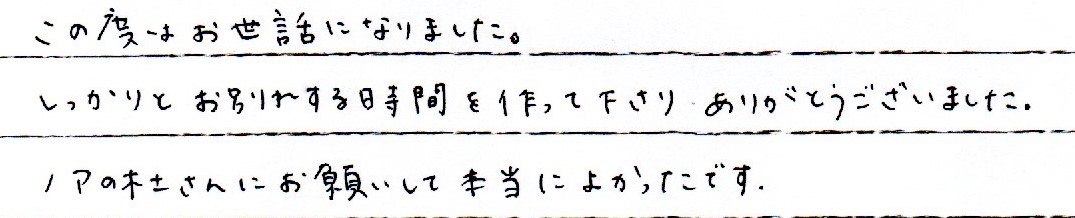 この度はお世話になりました。
しっかりとお別れする時間を作って下さり ありがとうございました。
ノアの杜さんにお願いして本当によかったです.